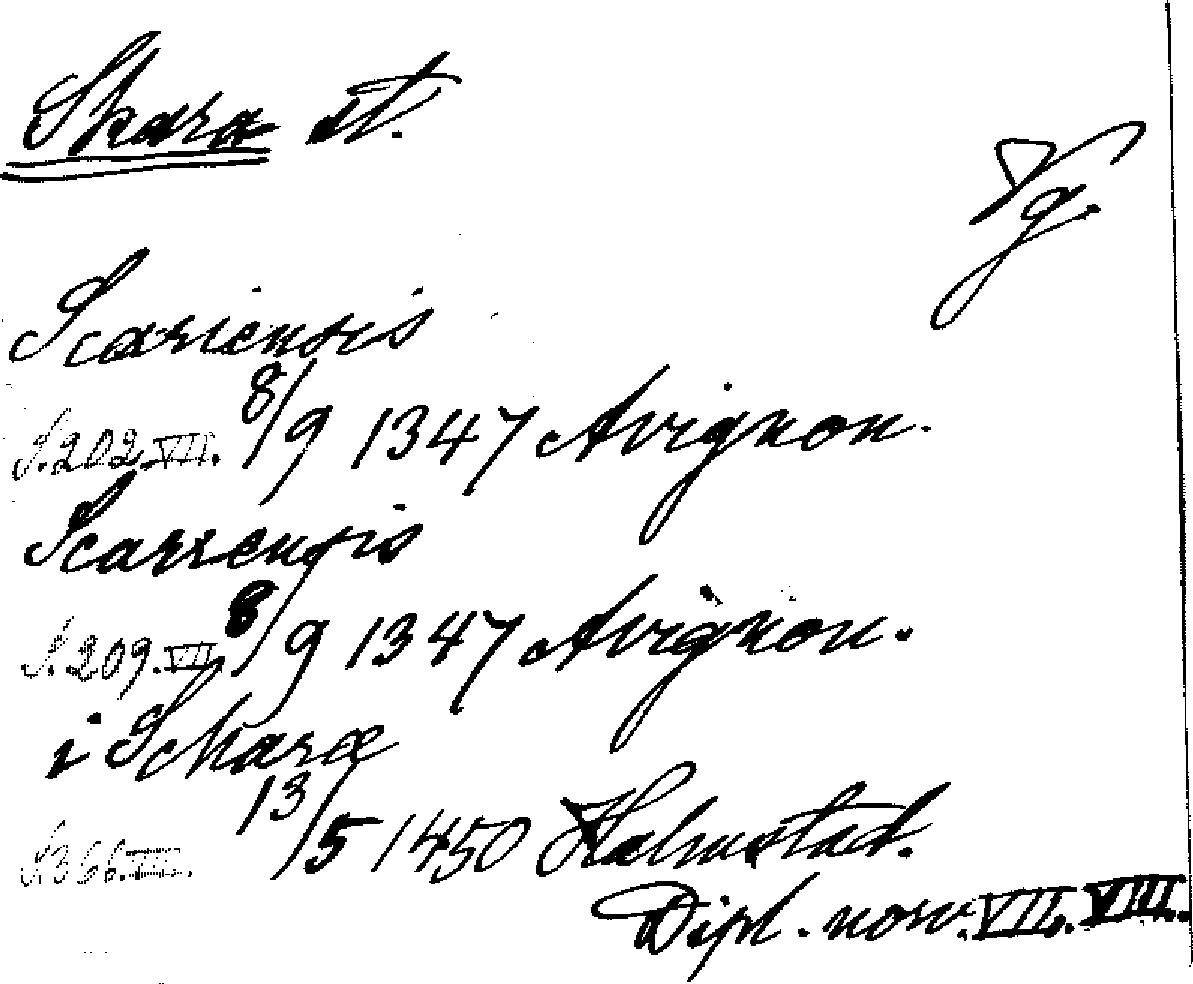 Skara st.
Vg.
Scariensis
S. 202. VII. 8/9 1347 Avignon.
Scarrensis
S. 209. VII 8/9 1347 Avignon.
i Scharæ
S. 366. VIII. 13/5 1450 Halmstad.
Dipl. norv. VII. VIII.